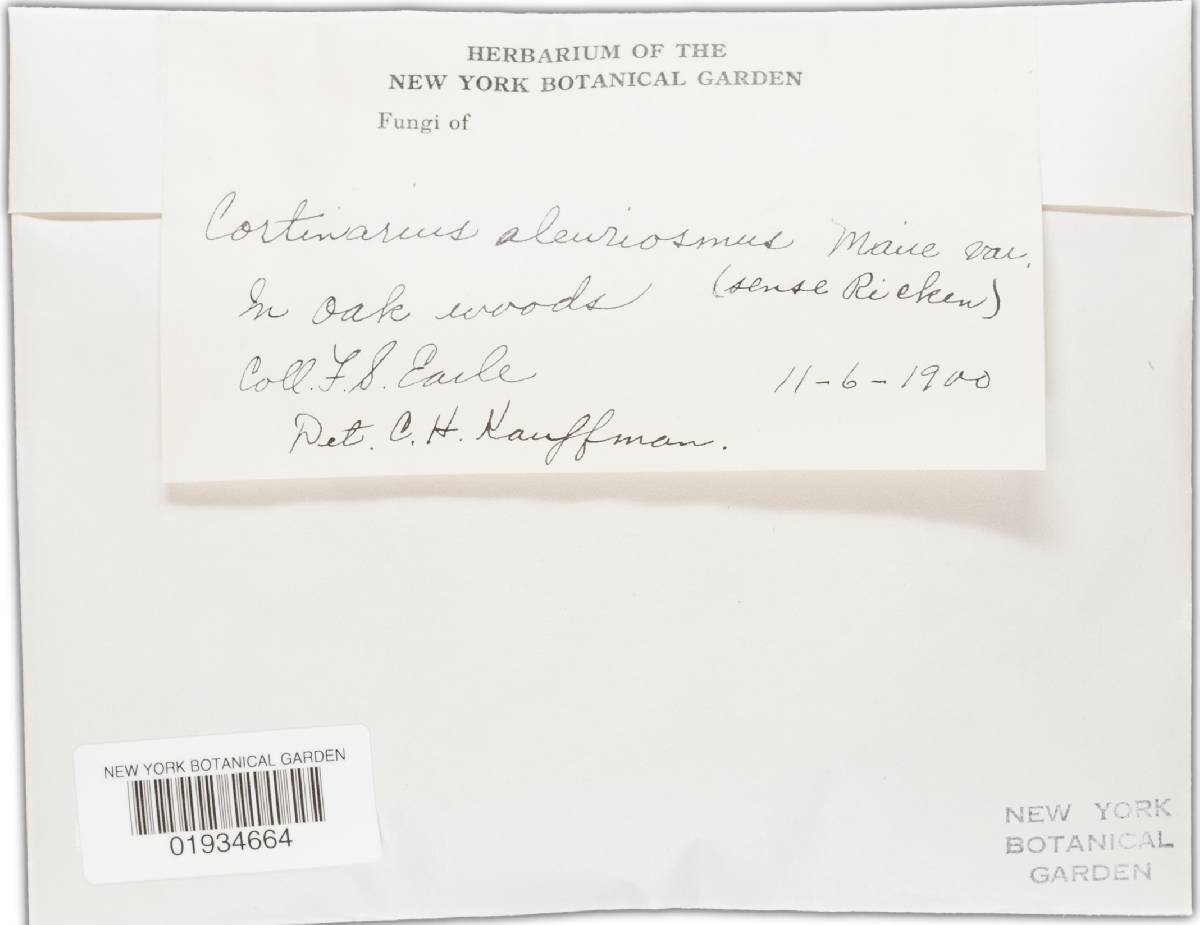 HERBARIUM OF THE
NEW YORK BOTANICAL GARDEN
Fungi of
Cortinarius aleuriosmus Maire var.
In oak woods (sense Ricken)
Coll. F. S. Earle 11-6-1900
Det. C. H. Kauffman.
NEW YORK BOTANICAL GARDEN
01934664
NEW YORK
BOTANICAL
GARDEN